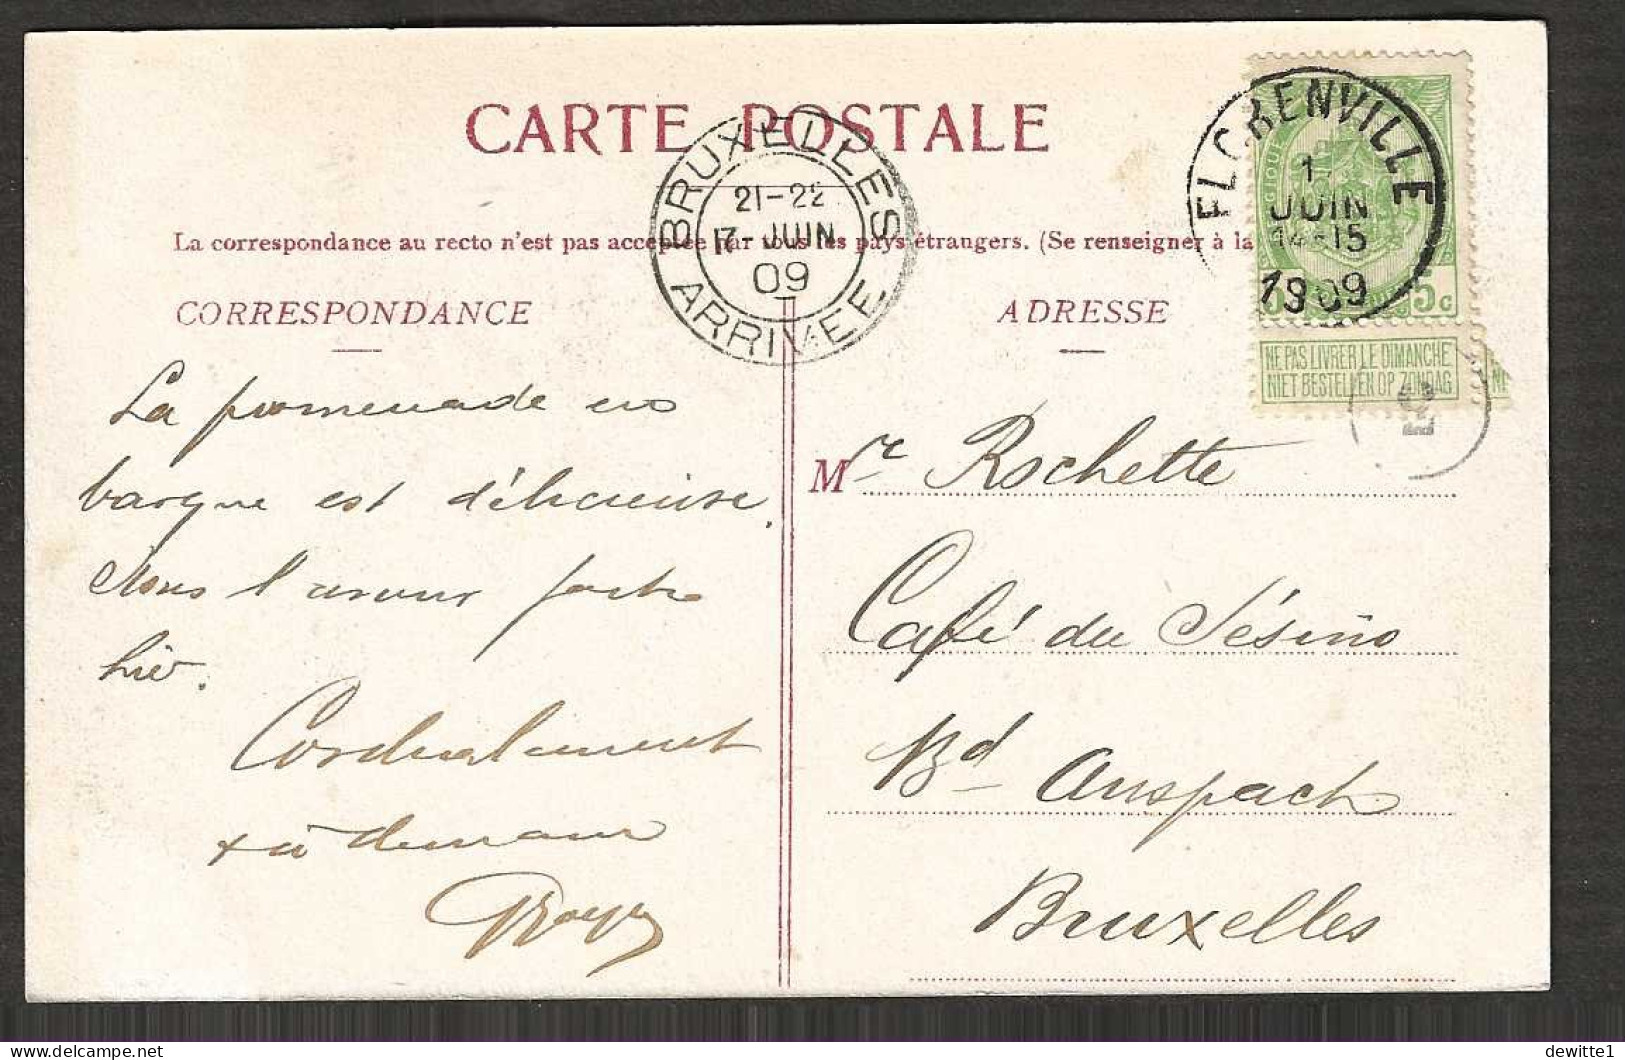 CARTE POSTALE
La correspondance au recto n'est pas acceptée par tous les pays étrangers. (Se renseigner à la
BRUXELLES
21-22
17-JUIN
09
ARRIVEE
FLORENVILLE
1
JUIN
14-15
1909
5c
NE PAS LIVRER LE DIMANCHE
NIET BESTELLEN OP ZONDAG
NE
2
CORRESPONDANCE
La promenade en
barque est délicieuse.
Nous l'avons faite
hier.
Cordialement
+ à demain
ADRESSE
Mr Rochette
Café du Sésino
Bd Anspach
Bruxelles
dewitte1